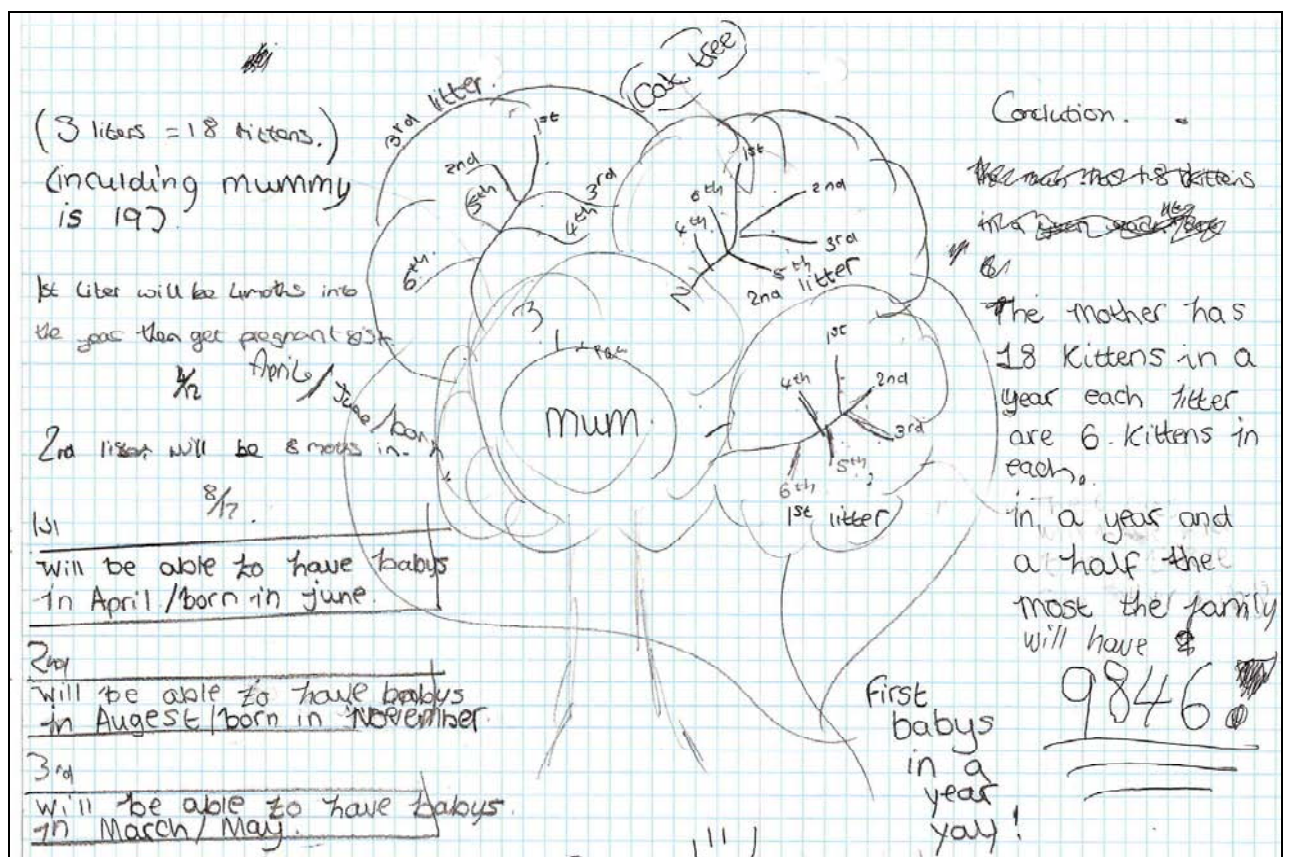 (3 liters = 18 kittens.)
(inculding mummy
is 19)
1st liter will be 4moths into
the year then get pregnant
4/12
April / June / born
2nd litter will be 8 moths in.
8/12.
1st
will be able to have babys
in April /born in june.
2nd
will be able to have babys
in Augest /born in November.
3rd
will be able to have babys.
in March / May.
Oak tree
3rd litter.
1st
2nd
5th
3rd
4th
6th
1st
6th
2nd
4th
3rd
5th
2nd litter
mum
1st
4th
2nd
3rd
5th
6th
1st litter
First
babys
in a
year
yay!
Conclution.
The mother has
18 Kittens in a
year each litter
are 6 Kittens in
each.
in a year and
a half the
most the family
will have
9846!